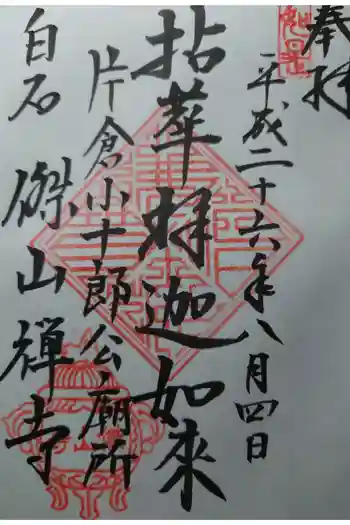 奉拝
平成二十六年八月四日
拈華釈迦如來
片倉小十郎公廟所
白石 傑山禅寺